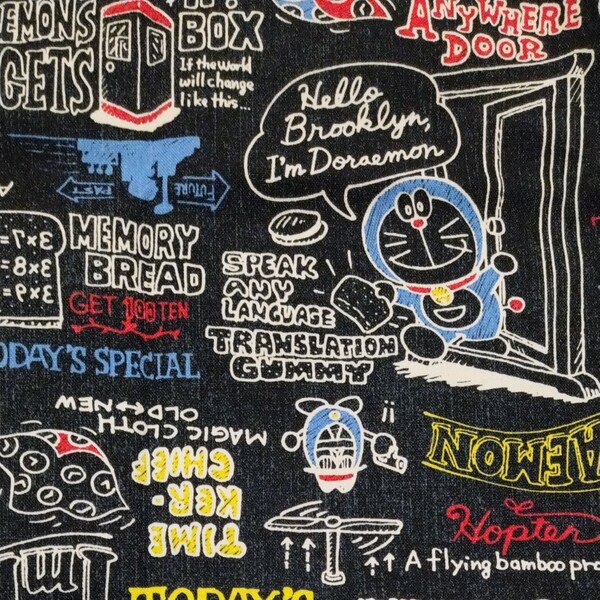 ANYWHERE
DOOR
GETS
BOX
If the world
will change
like this...
Hello
Brooklyn,
I'm Doraemon
PAST
FUTURE
MEMORY
BREAD
GET 100 TEN
3×7=
3×8=
3×9=
SPEAK
ANY
LANGUAGE
TRANSLATION
GUMMY
TODAY'S SPECIAL
MAGIC CLOTH
OLD↔NEW
TIME
KER-
CHIEF
AEMON
Hopter
A flying bamboo pro
TODAY'S